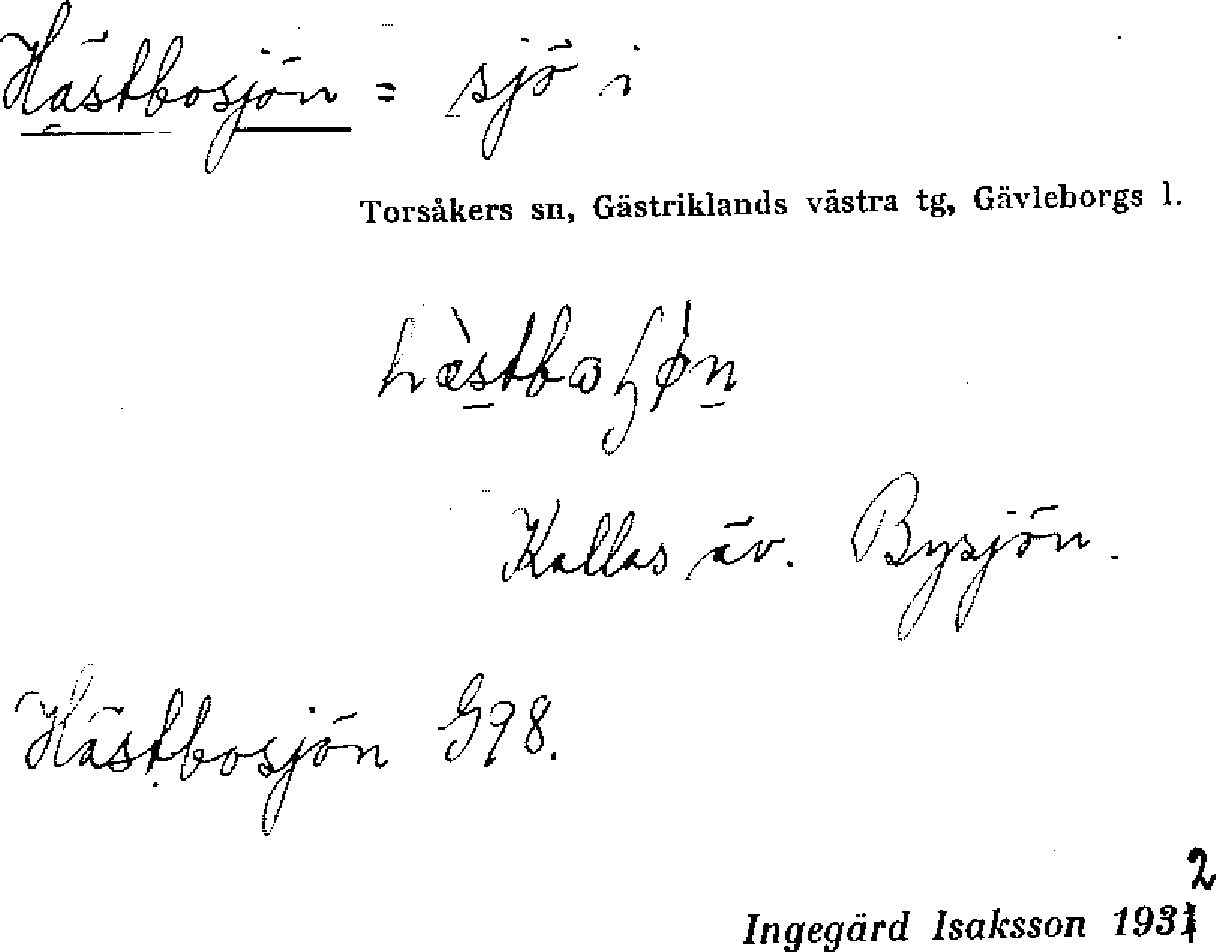 Hästbosjön = sjö i
Torsåkers sn, Gästriklands västra tg, Gävleborgs l.
Kallas äv. Bysjön.
Hästbosjön G98.
Ingegärd Isaksson 1932